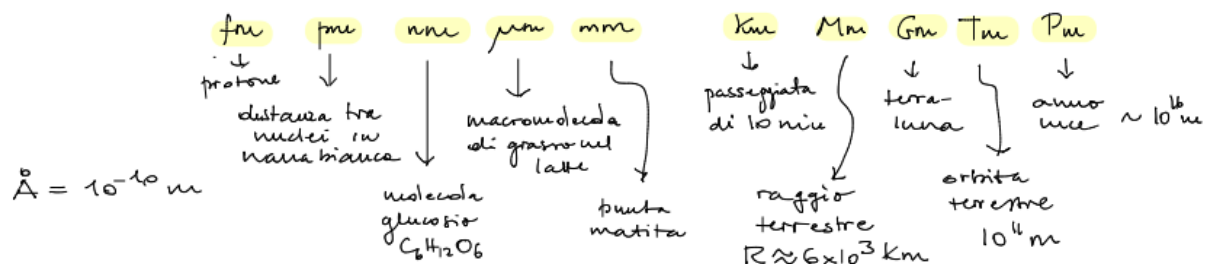 fm pm nm μm mm Km Mm Gm Tm Pm
protone
distanza tra
nuclei in
nana bianca
molecola
glucosio
C₆H₁₂O₆
macromolecola
di grasso nel
latte
punta
matita
passeggiata
di 10 min
raggio
terrestre
R ≈ 6×10³ Km
terra-
luna
orbita
terrestre
10¹¹ m
anno
luce ~ 10¹⁶ m
Å = 10⁻¹⁰ m